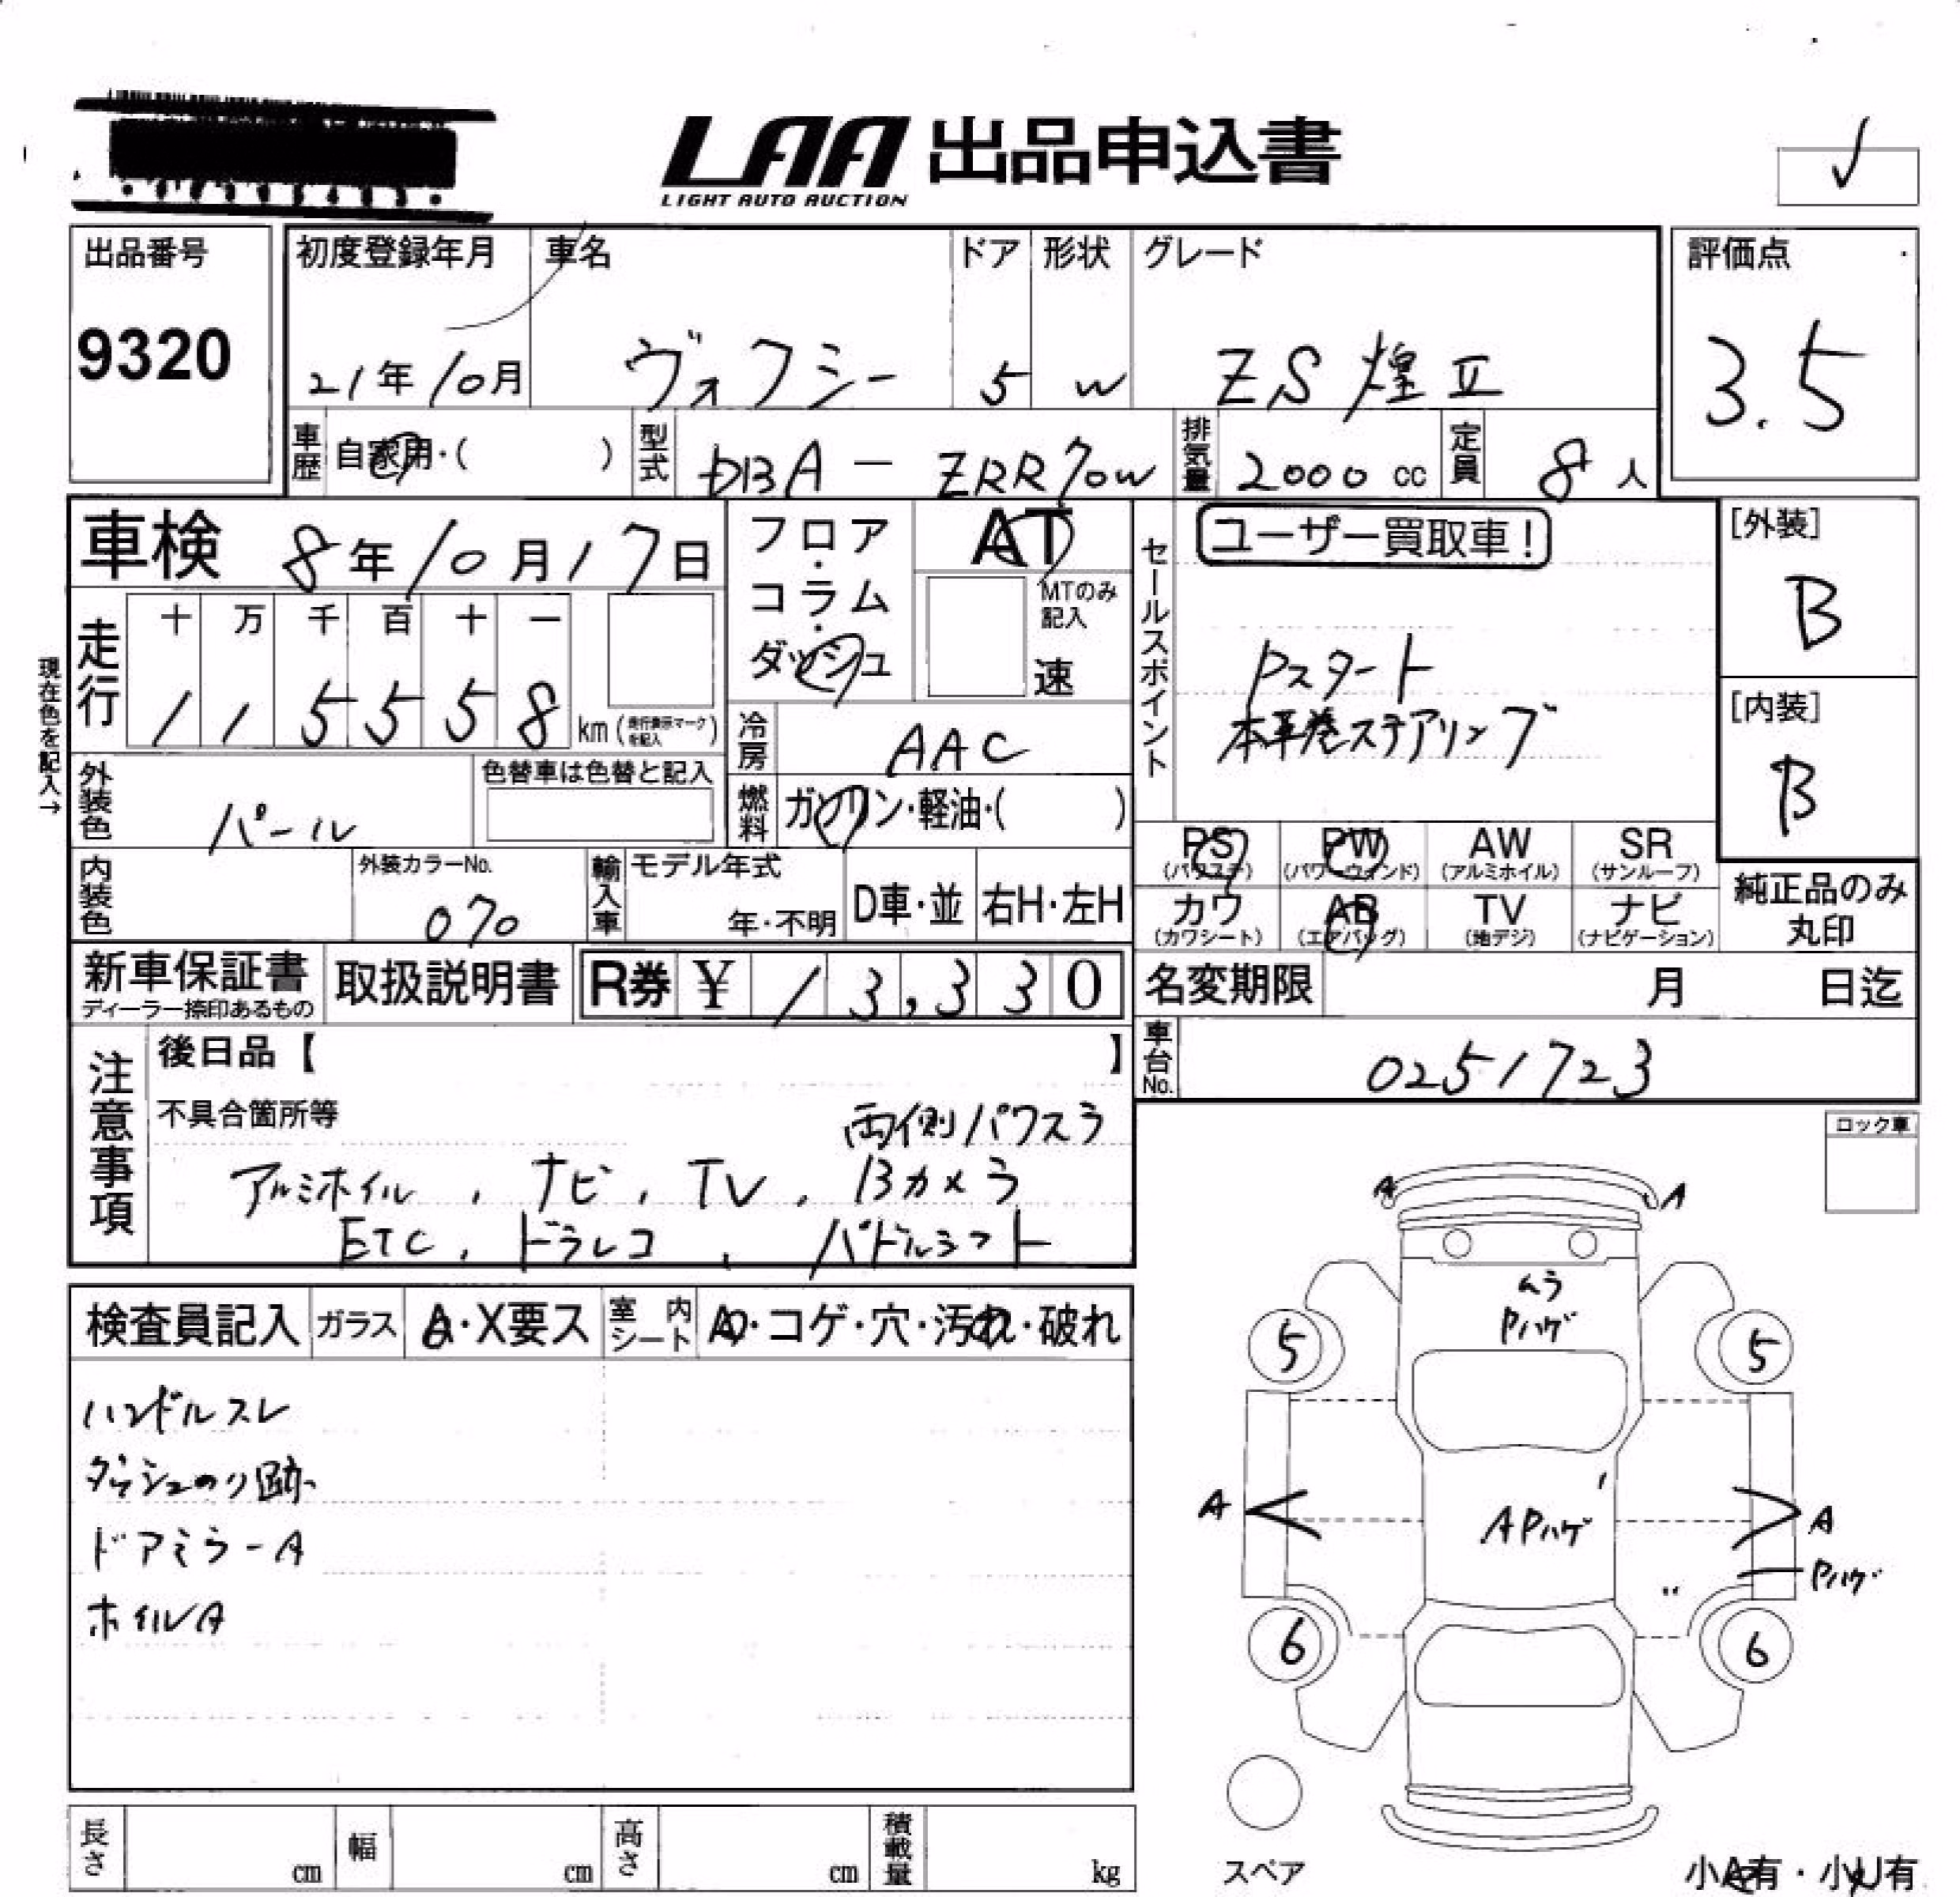 LAA 出品申込書
LIGHT AUTO AUCTION
✓
出品番号
9320
初度登録年月
21年10月
車名
ヴォクシー
ドア
5
形状
W
グレード
ZS 煌Ⅱ
評価点
3.5
車歴 自家用・( )
型式 DBA － ZRR70W
排気量 2000 cc
定員 8 人
車検 8年10月17日
フロア・コラム・ダッシュ
AT
MTのみ記入
速
セールスポイント
ユーザー買取車!
Pスタート
本革巻ステアリング
[外装]
B
[内装]
B
現在色を記入→
走行
十 万 千 百 十 一
1 1 5 5 5 8 km (走行表示マークを記入)
冷房 AAC
外装色 パール
色替車は色替と記入
燃料 ガソリン・軽油・( )
PS (パワステ) PW (パワーウインド) AW (アルミホイル) SR (サンルーフ)
カワ (カワシート) AB (エアバッグ) TV (地デジ) ナビ (ナビゲーション)
純正品のみ丸印
内装色
外装カラーNo.
070
輸入車 モデル年式
年・不明
D車・並
右H・左H
新車保証書
ディーラー捺印あるもの
取扱説明書
R券 ¥ 13,330
名変期限 月 日迄
車台No. 0251723
注意事項
後日品【 】
不具合箇所等
両側パワスラ
アルミホイル、ナビ、TV、Bカメラ
ETC、ドラレコ、パドルシフト
ロック車
検査員記入
ガラス A・X要ス
室内シート A・コゲ・穴・汚れ・破れ
ハンドルスレ
ダッシュのリ跡
ドアミラーA
ホイルA
A A
ムラ
Pハゲ
5 5
A A
APハゲ
〃 Pハゲ
6 6
スペア
小A有・小U有
長さ cm
幅 cm
高さ cm
積載量 kg